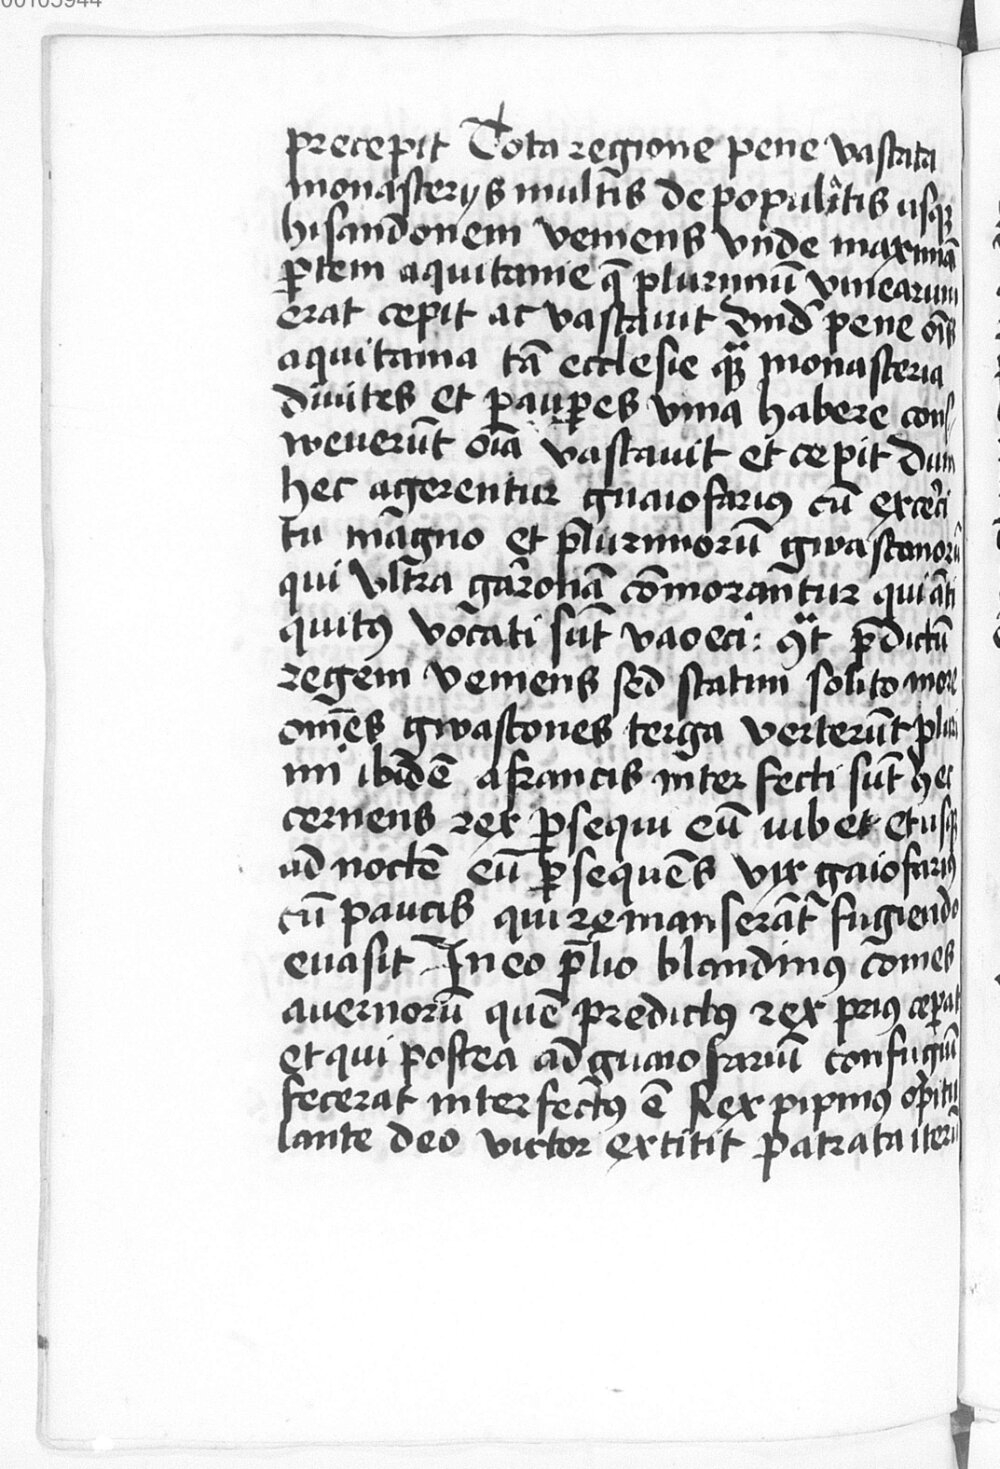 00105944
precepit Tota regione pene vastata
monasterijs multis depopulatis usqꝫ
hisandonem veniens vnde maximā
ꝑtem aquitanie q̄ plurimū vinearum
erat cepit ac vastauit vnd̄ pene oīs
aquitania tā ecclesie qͣꝫ monasteria
diuites et pauꝑes vina habere con
weuerūt oīa vastauit et cepit Dum
hec agerentur guaiofariꝰ cū exerci
tu magno et plurimorū gwasconorū
qui vltra garonā cōmorantur qui āti
quitꝰ vocati sūt vaoeci: ꝯͭ p̄dictū
regem veniens sed statim solito more
om̄es gwascones terga verterūt pluri
mi ibidē a francis interfecti sūt hec
cernens rex ꝑsequi eū iubet et usqꝫ
ad noctē eū ꝑsequēs vix gaiofariꝰ
cū paucis qui remanserāt fugiendo
euasit In eo p̄lio blandinꝰ comes
auernorū quē predictꝰ rex priꝰ ceperat
et qui postea ad guaiofariū confugiū
fecerat interfectꝰ ē Rex pipinꝰ opitu
lante deo victor extitit patrata iterū